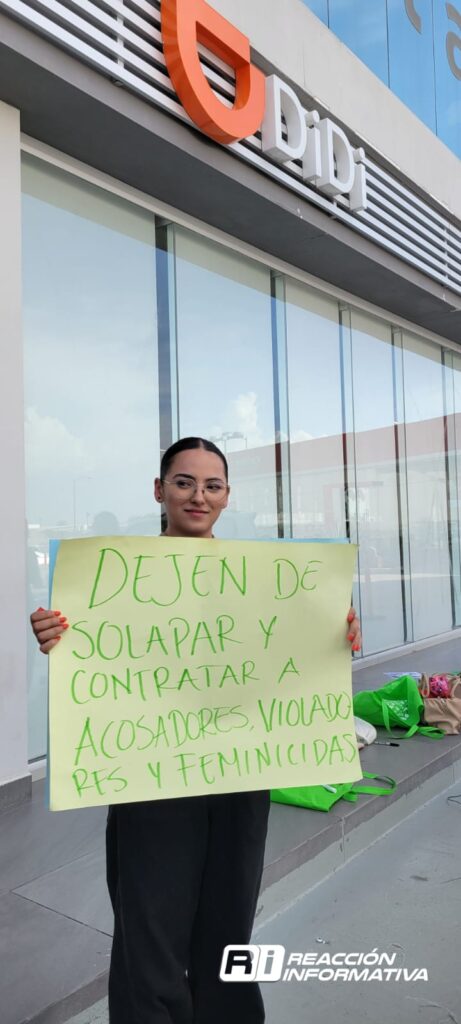 DiDi
DEJEN DE
SOLAPAR Y
CONTRATAR A
ACOSADORES, VIOLADO
RES Y FEMINICIDAS
Ri REACCIÓN
INFORMATIVA